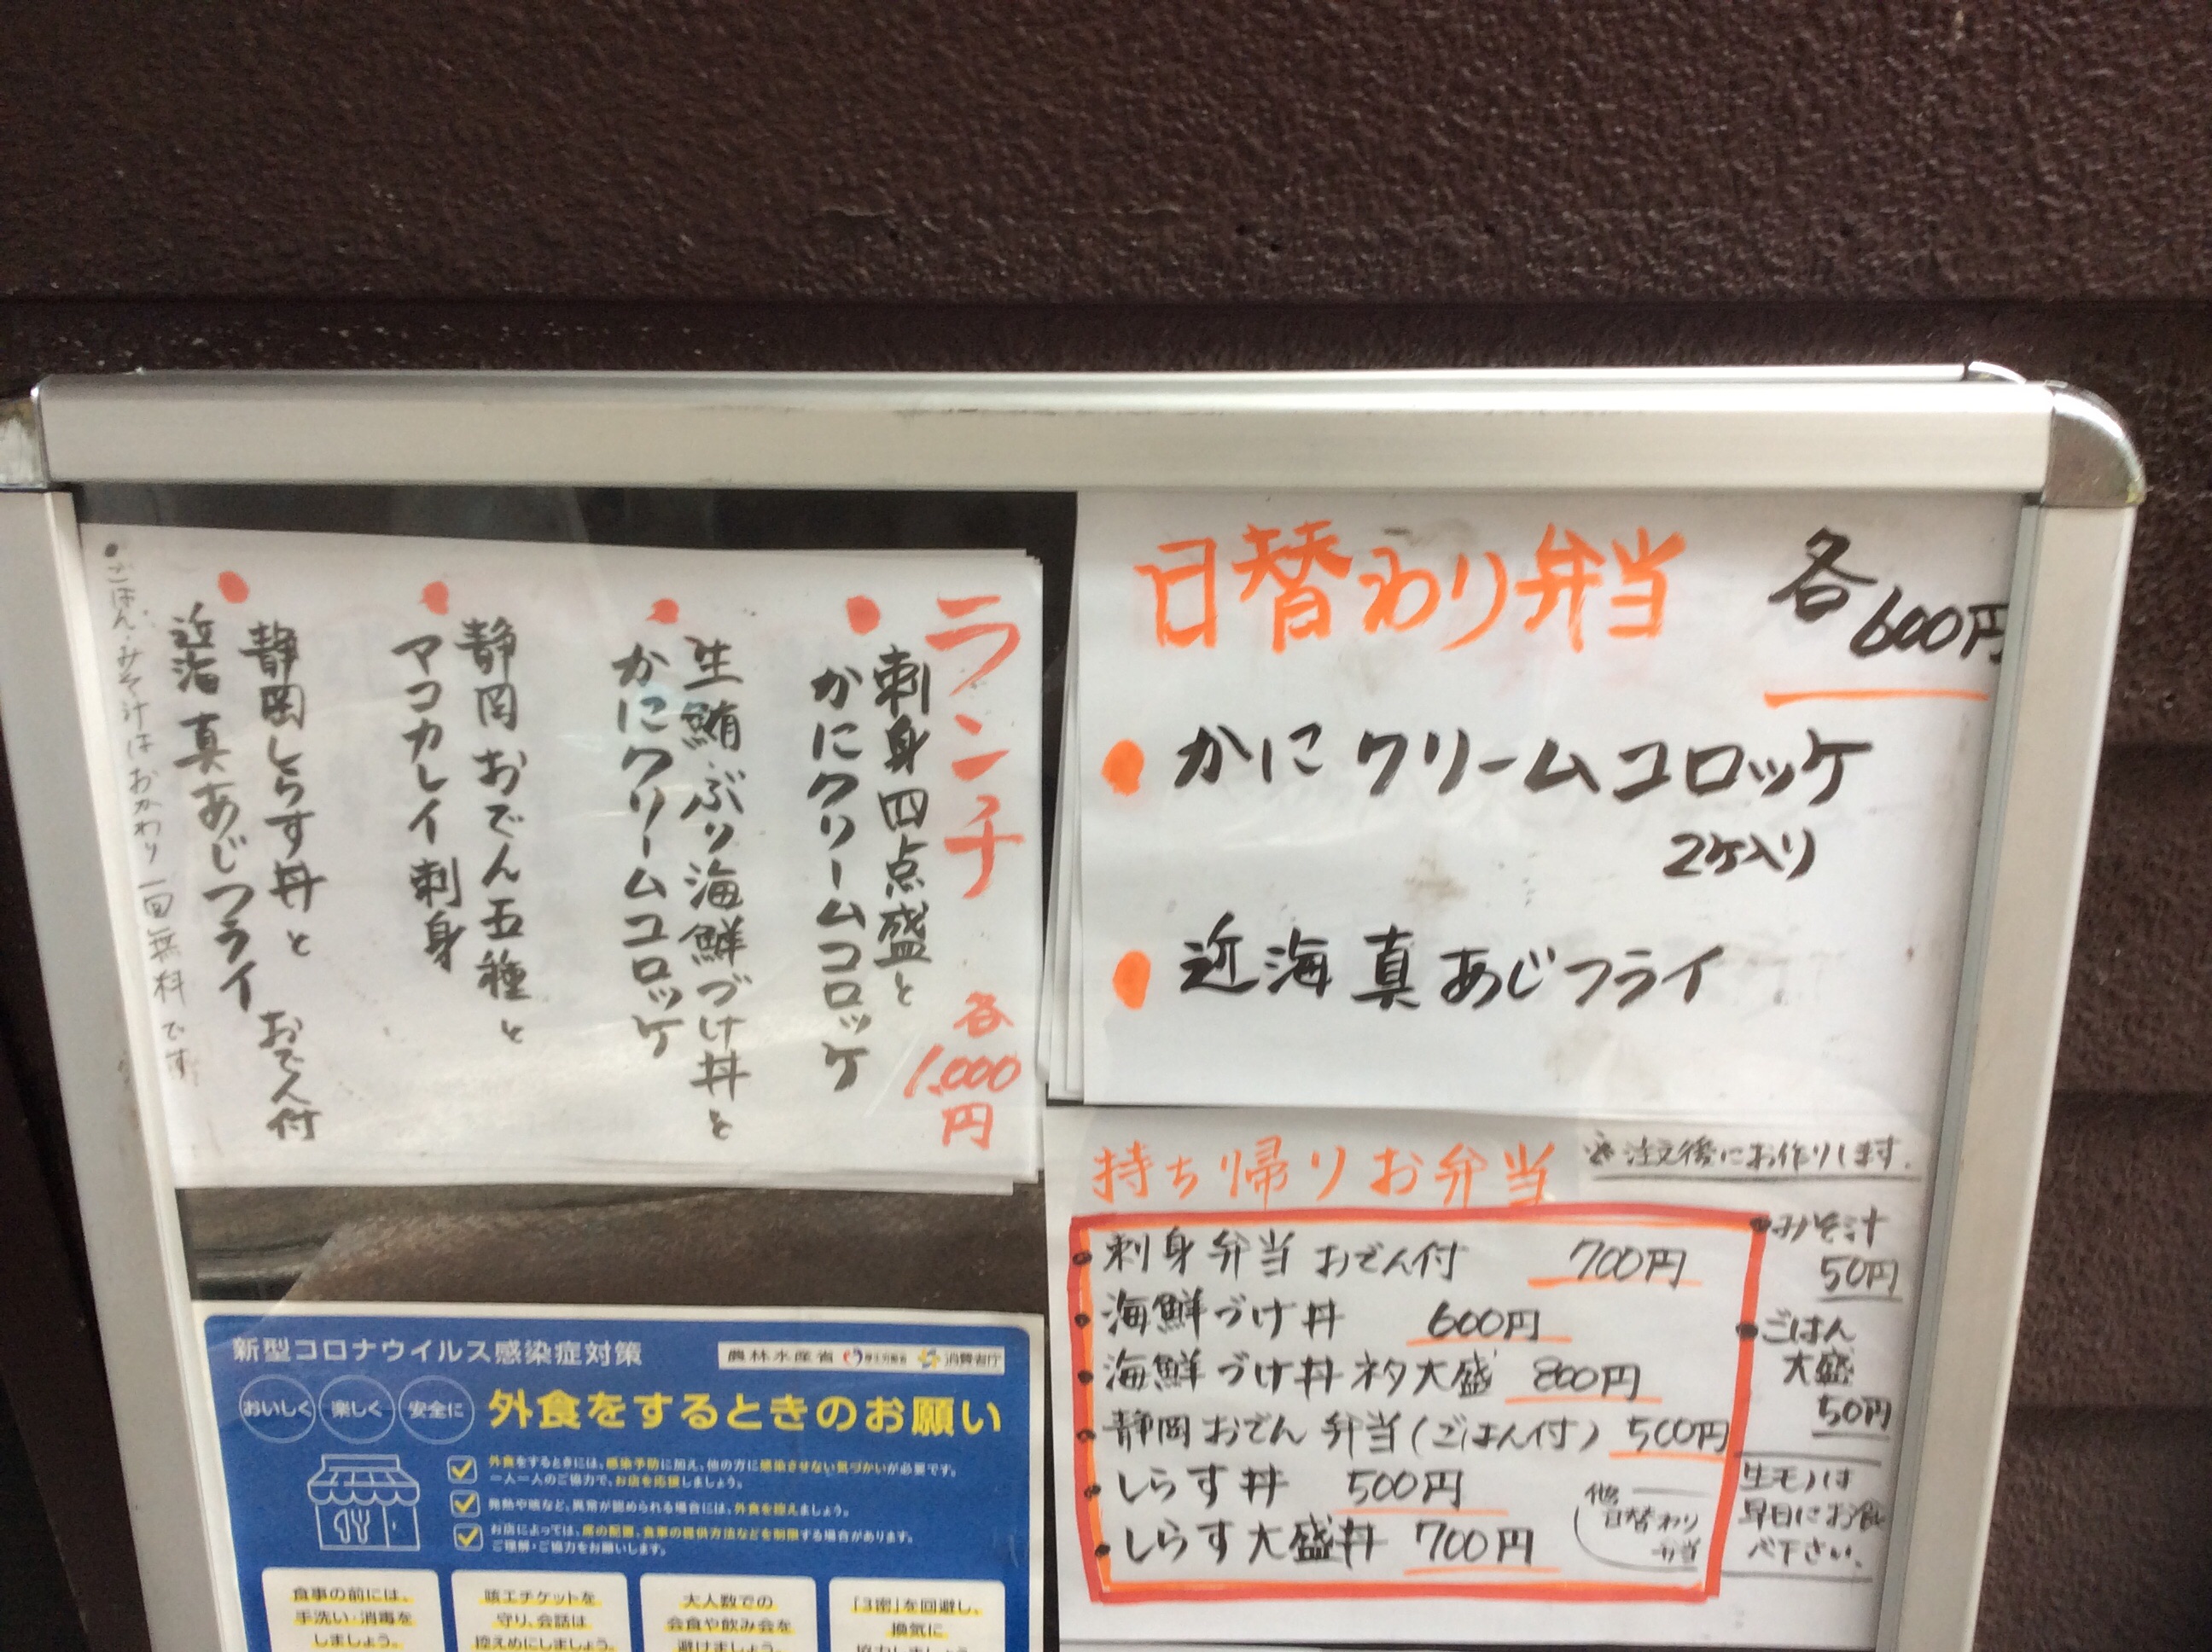 ランチ 各1,000円
●刺身四点盛と
かにクリームコロッケ
●生鮪ぶり海鮮づけ丼と
かにクリームコロッケ
●静岡おでん五種と
マコカレイ刺身
●静岡しらす丼と おでん付
近海真あじフライ
●ごはん・みそ汁はおかわり一回無料です
日替わり弁当 各600円
●かにクリームコロッケ
2ヶ入り
●近海真あじフライ
持ち帰りお弁当 ※注文後にお作りします。
●刺身弁当おでん付 700円
●海鮮づけ丼 600円
●海鮮づけ丼ネタ大盛 800円
●静岡おでん弁当(ごはん付) 500円
●しらす丼 500円
●しらす大盛丼 700円
他
日替わり
弁当
●みそ汁
50円
●ごはん
大盛
50円
生モノは
早目にお食
べ下さい。
新型コロナウイルス感染症対策
農林水産省 厚生労働省 消費者庁
おいしく 楽しく 安全に
外食をするときのお願い
外食をするときには、感染予防に加え、他の方に感染させない気づかいが必要です。
一人一人のご協力で、お店を応援しましょう。
発熱や咳など、異常が認められる場合には、外食を控えましょう。
お店によっては、席の配置、食事の提供方法などを制限する場合があります。
ご理解・ご協力をお願いします。
食事の前には、
手洗い・消毒を
しましょう。
咳エチケットを
守り、会話は
控えめにしましょう。
大人数での
会食や飲み会を
避けましょう。
「3密」を回避し、
換気に